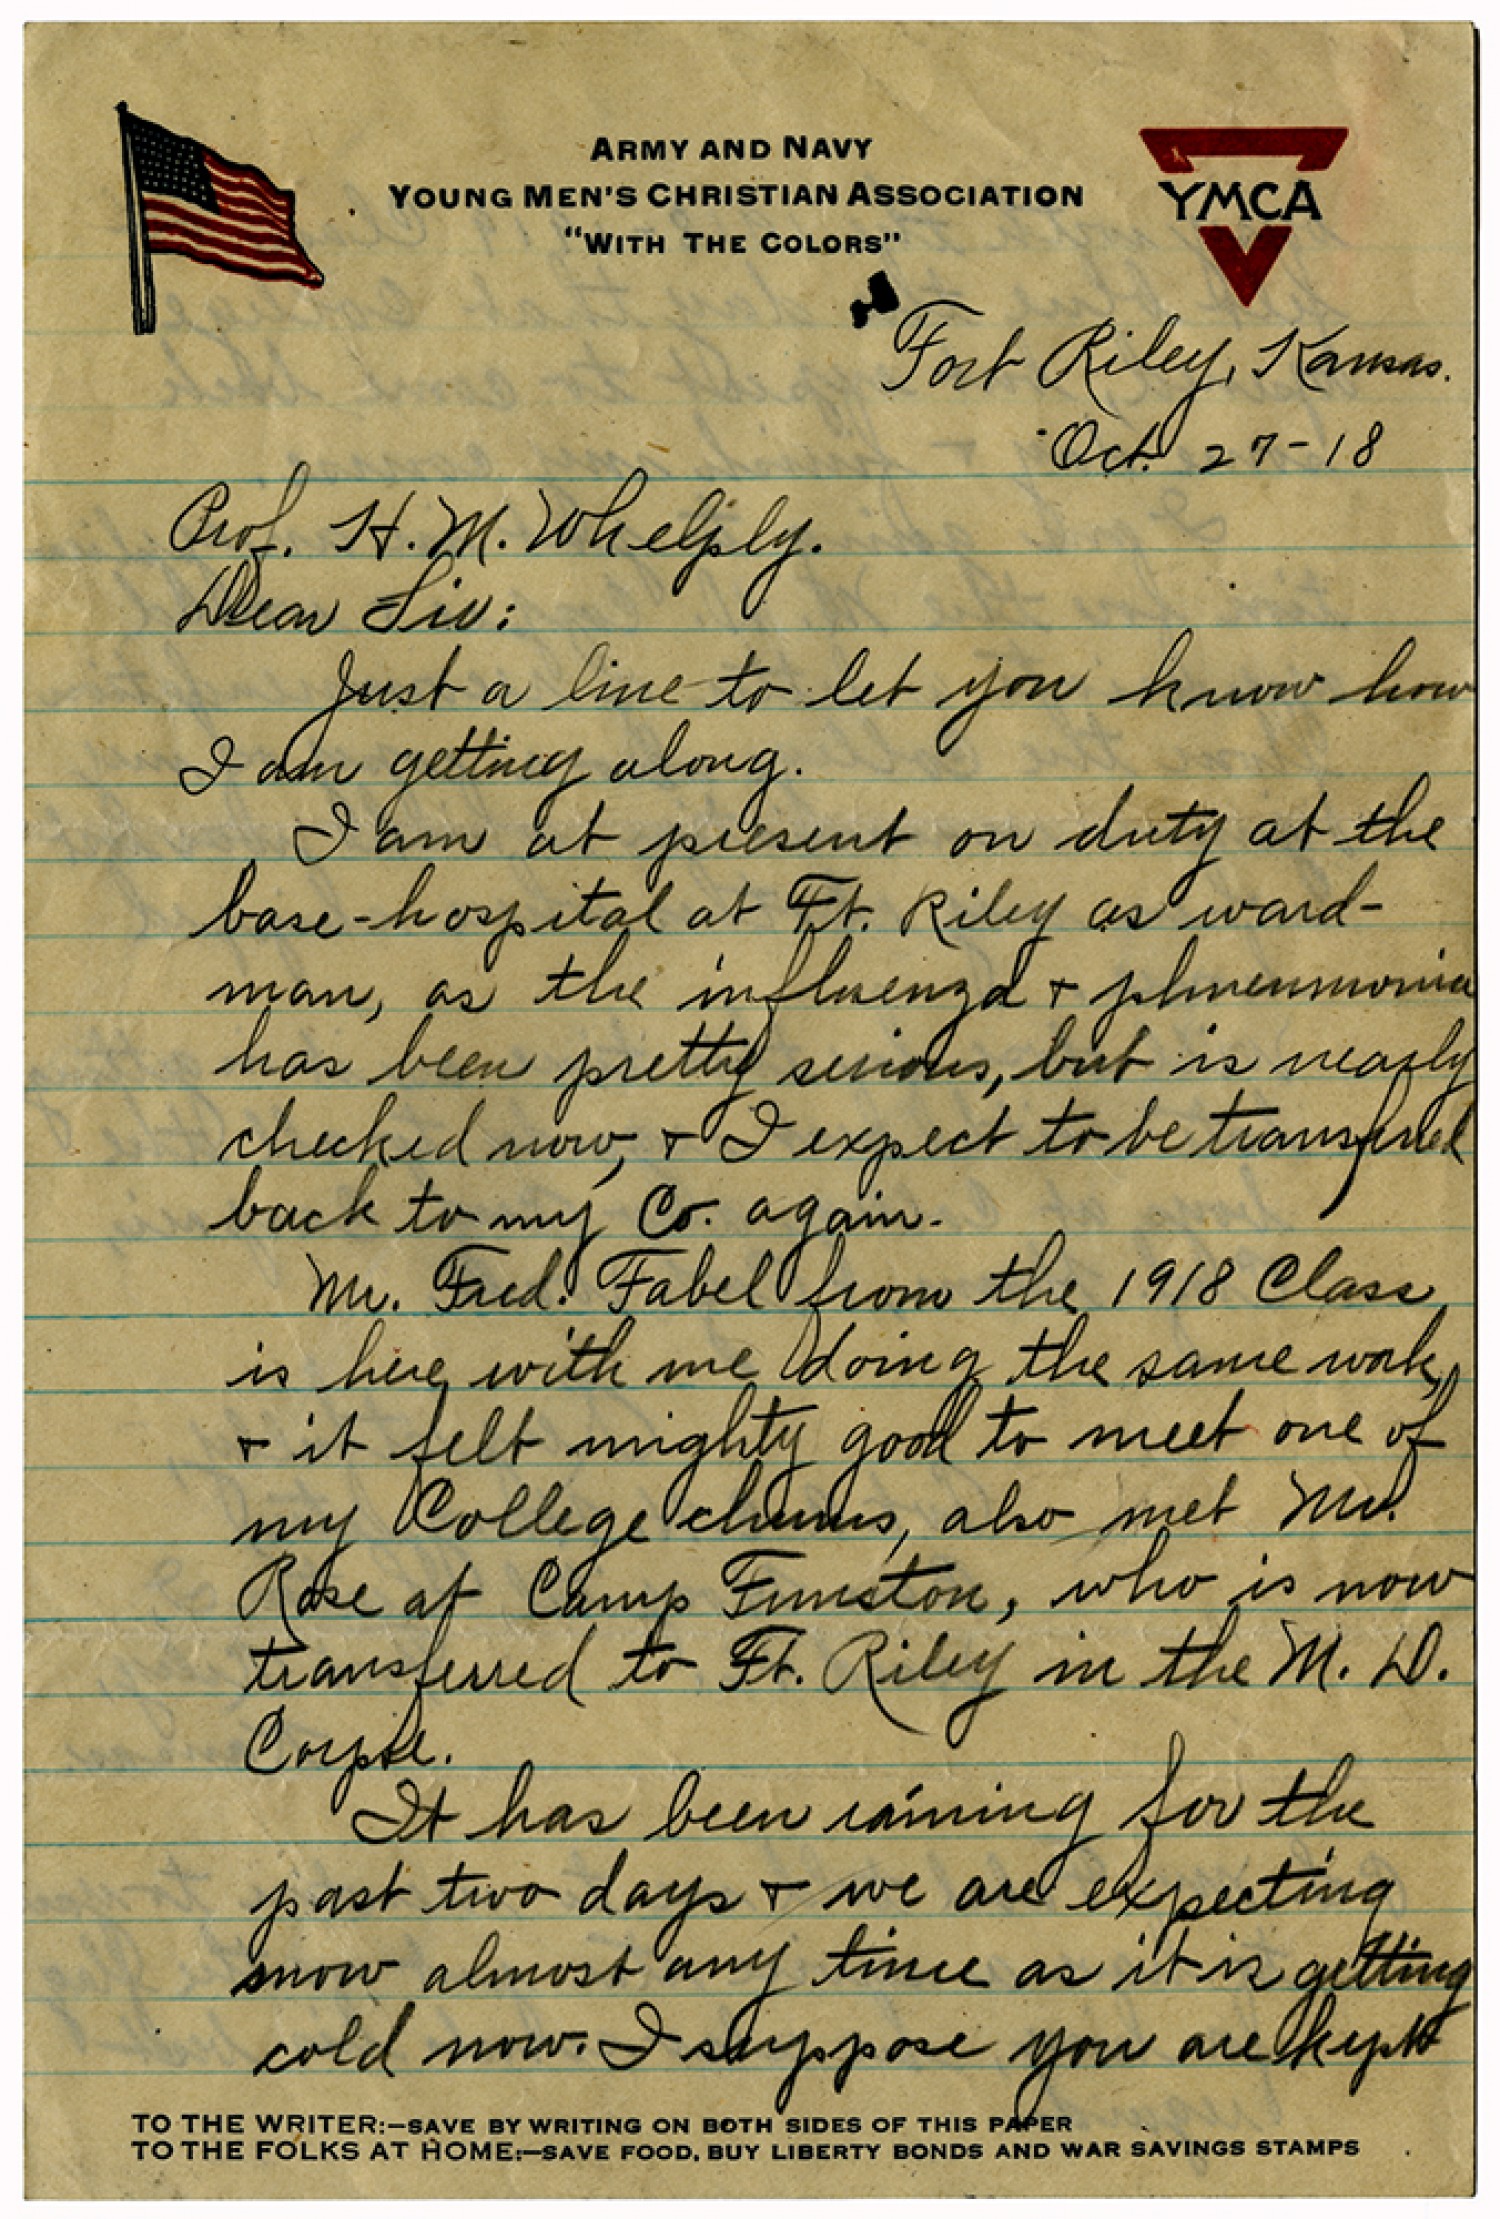 ARMY AND NAVY
YOUNG MEN'S CHRISTIAN ASSOCIATION
"WITH THE COLORS"
YMCA
Fort Riley, Kansas.
Oct. 27-18
Prof. H. M. Whelply.
Dear Sir:
Just a line to let you know how
I am getting along.
I am at present on duty at the
base-hospital at Ft. Riley as ward-
man, as the influenza + phneumonia
has been pretty serious, but is nearly
checked now, + I expect to be transfered
back to my Co. again.
Mr. Fred. Fabel from the 1918 Class
is here with me doing the same work,
+ it felt mighty good to meet one of
my College chums, also met Mr.
Rose at Camp Funston, who is now
transferred to Ft. Riley in the M. D.
Corpse.
It has been raining for the
past two days + we are expecting
snow almost any time as it is getting
cold now. I suppose you are kept
TO THE WRITER:—SAVE BY WRITING ON BOTH SIDES OF THIS PAPER
TO THE FOLKS AT HOME:—SAVE FOOD, BUY LIBERTY BONDS AND WAR SAVINGS STAMPS